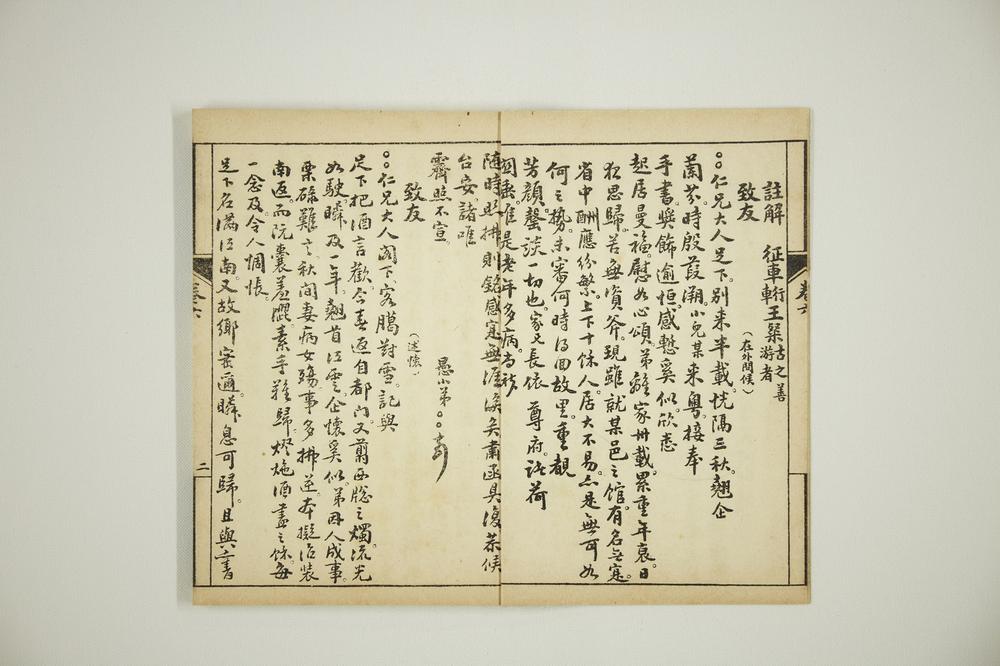 註解 征車 行車 王粲 古之善游者
致友 (在外問候)
○○仁兄大人足下。別來半載。恍隔三秋。翹企
蘭芬。時殷葭溯。小兒某來粵。接奉
手書。奬飾逾恒。感慙奚似。欣悉
起居曼福。慰如心頌。弟離家卅載。累重年衰。日
犯思歸。苦無資斧。現雖就某邑之館。有名無寔。
省中酬應紛繁。上下十餘人。居大不易。亦是無可如
何之勢。未審何時得回故里。重覩
芳顏。罄談一切也。家又長依 尊府。託荷
關垂。惟是老年多病。尚祈
隨時照拂。則銘感寔無涯涘矣。肅函具復。恭候
台安。諸唯
霽照不宣。
愚小弟○○頓
致友 (述懷)
○○仁兄大人閣下。客臘對雪。記與
足下把酒言歡。今春返自都門。又剪西牕之燭。流光
如駛。瞬及一年。翹首江雲。企懷奚似。弟因人成事。
栗碌難言。秋間妻病女殤。事多拂逆。本擬治裝
南返。而阮囊羞澀。素手難歸。燈灺酒盡之餘。每
一念及。令人惆悵。
足下名滿江南。又故鄉密邇。瞬息可歸。且與二三
卷六
二